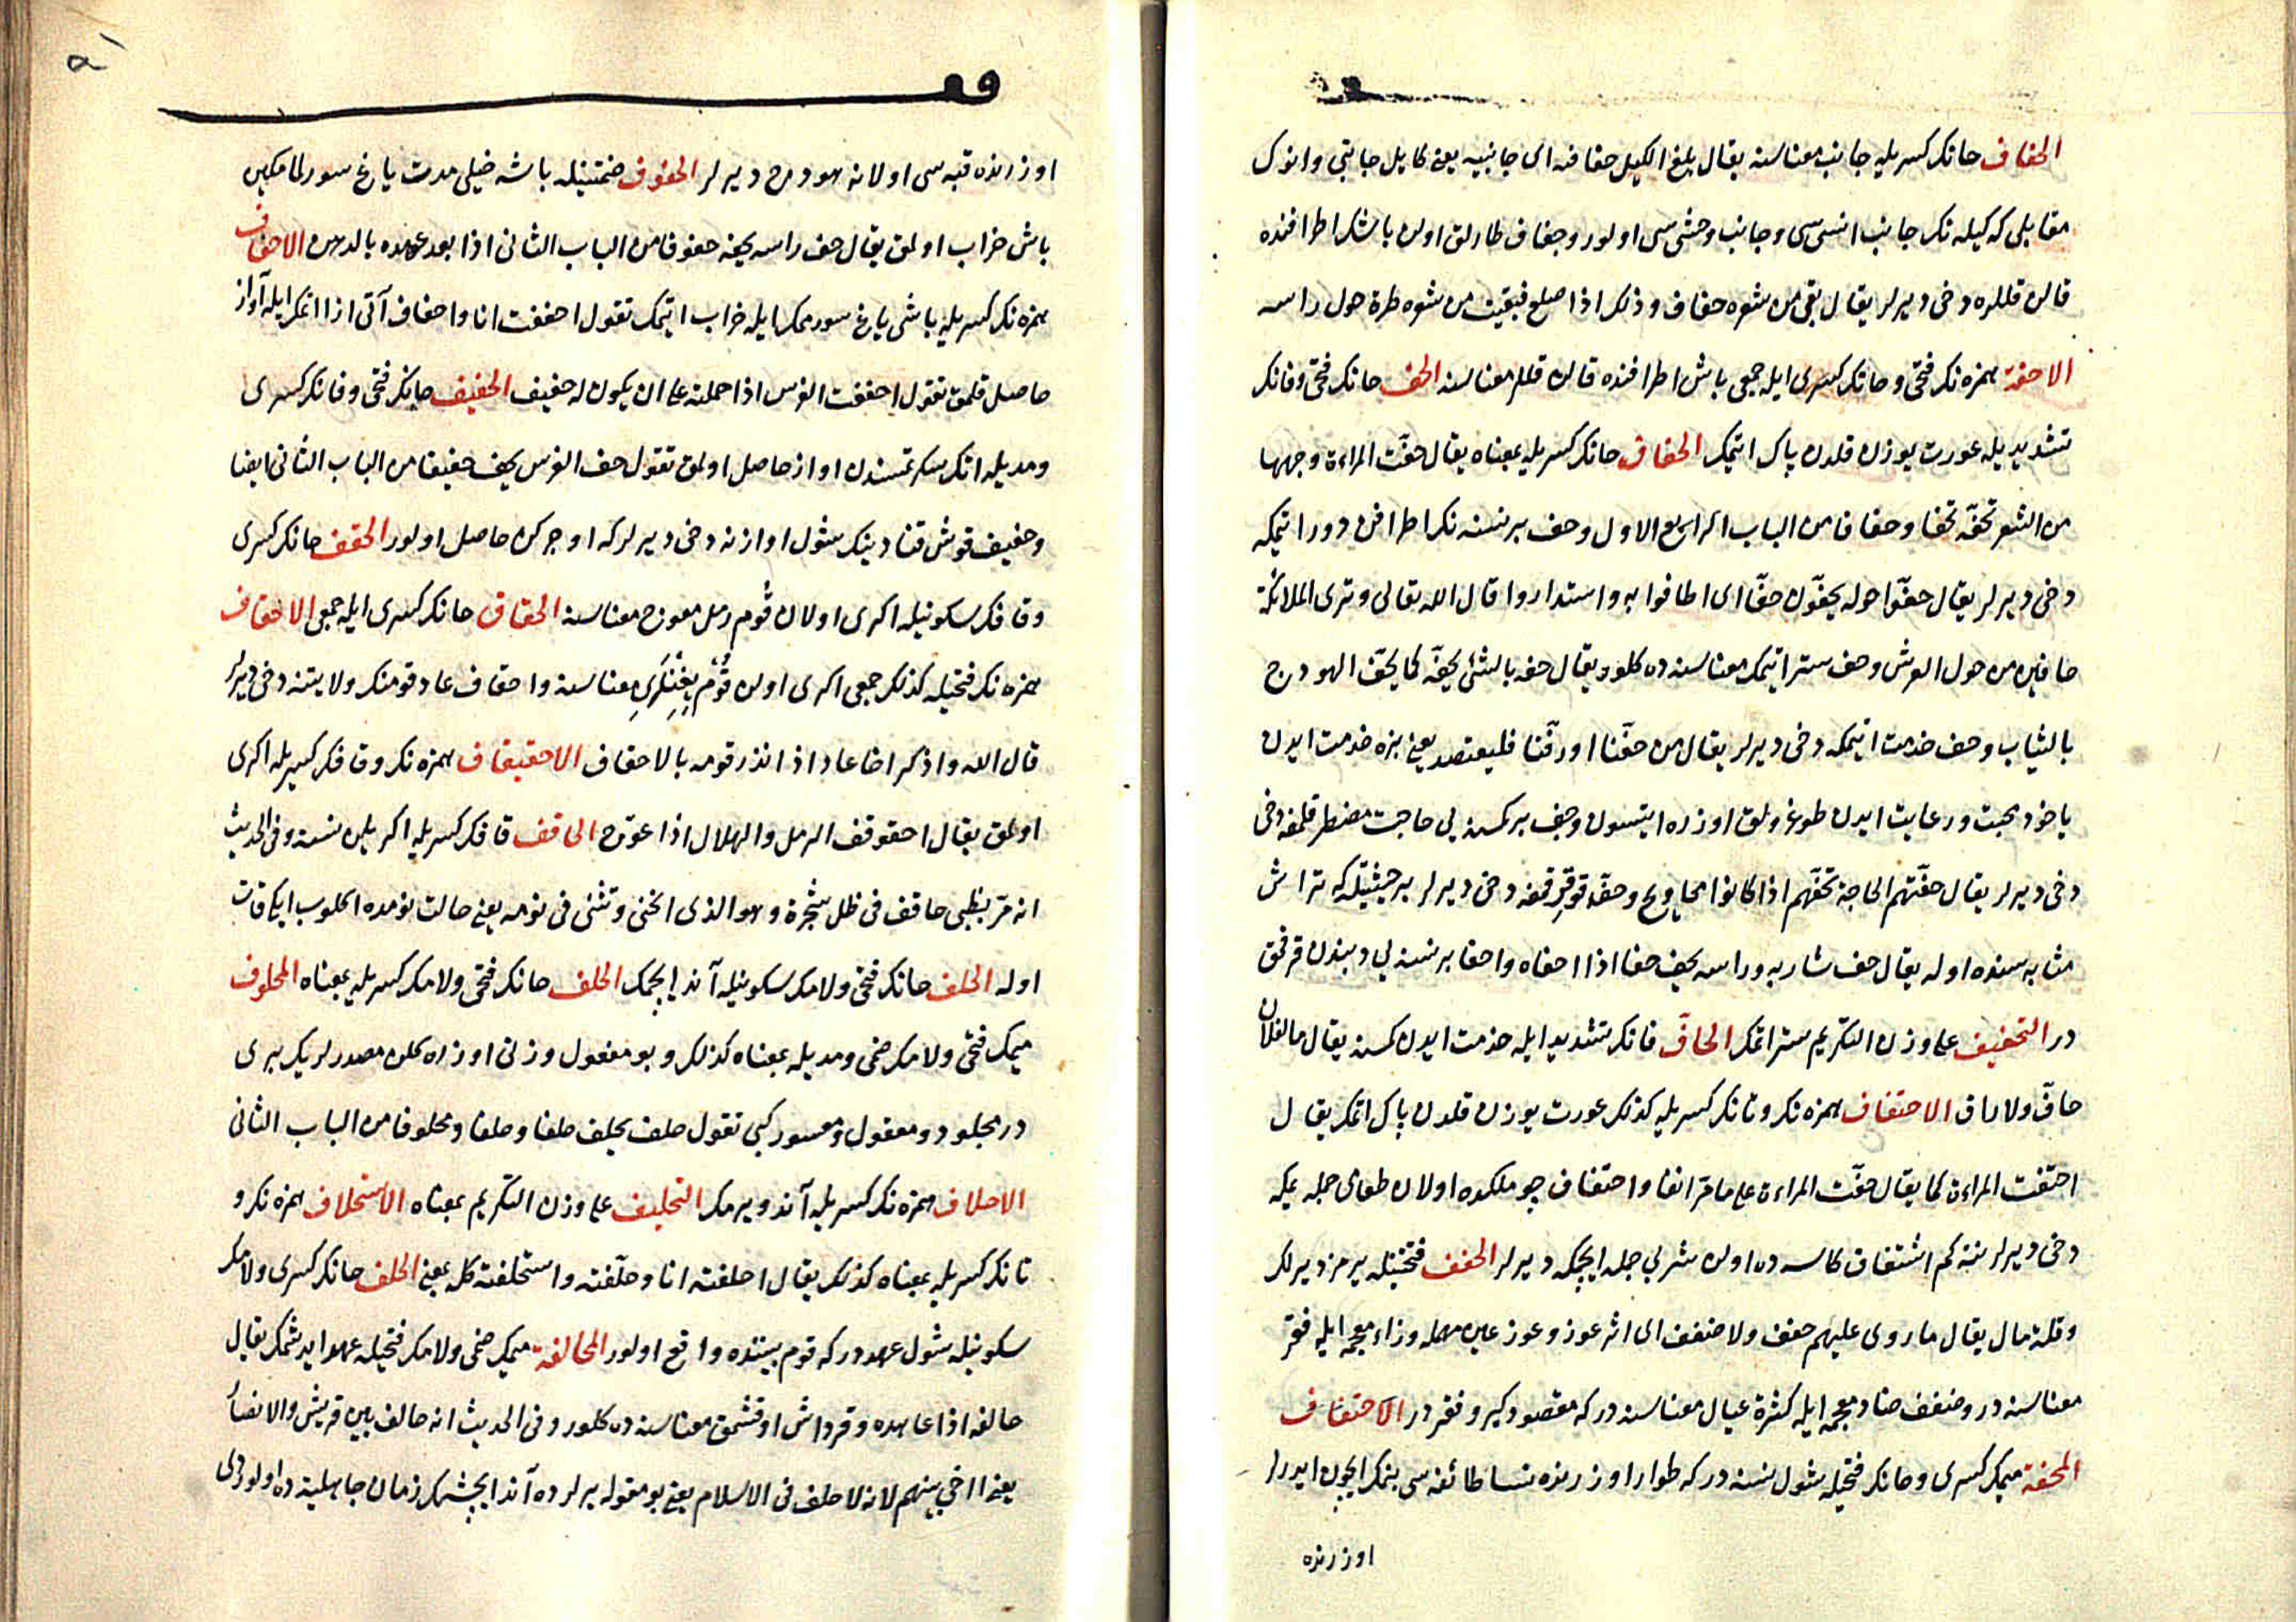 الحفاف حانك كسريله جانب معناسنه يقال بلغ الكيل حفافه اى جانبيه يعنى كايل جانبى وانوك
مقابلى كه كيله نك جانب انسى سى وجانب وحشى سى اولور وحفاف طارلق اولن باشك اطرافنده
قالن قللره دخى ديرلر يقال بقى من شعره حفاف وذلك اذا صلع فبقيت من شعره طرة حول راسه
الاحفة همزه نك فتحى وحانك كسرى ايله جمعى باش اطرافنده قالن قللر معناسنه الحف حانك فتحى وفانك
تشديديله عورت يوزن قلدن پاك ايتمك الحفاف حانك كسريله بمعناه يقال حفّت المراءة وجهها
من الشعر تحفّه حفا وحفافا من الباب الرابع الاول وحف برنسنه نك اطرافن دور ايتمكه
دخى ديرلر يقال حفّوا حوله يحفّون حفّا اى اطافوا به واستداروا قال الله تعالى وترى الملائكة
حافين من حول العرش وحف ستر ايتمك معناسنه ده كلور يقال حفه بالشئ يحفّه كما يحفّ الهودج
بالثياب وحف خدمت ايتمكه دخى ديرلر يقال من حفّنا او رفّنا فليقتصد يعنى بزه خدمت ايدن
ياخود محبت ورعايت ايدن طوغرولق اوزره ايتسون وحف بركمسنه يى حاجت مضطر قلمغه دخى
دخى ديرلر يقال حفّتهم الحاجة تحفّهم اذا كانوا محاويج وحفّ قرقمغه دخى ديرلر برحيثيتله كه تراش
مثابه سنده اوله يقال حف شاربه وراسه يحف حفا اذا احفاه واحفا برنسنه يى ديبندن قرقمق
در التحفيف على وزن التكريم ستر اتمك الحافّ فانك تشديدى ايله خدمت ايدن كمسنه يقال ما لفلان
حافّ ولا رافّ الاحتفاف همزه نك وتانك كسريله كذلك عورت يوزن قلدن پاك اتمك يقال
احتفت المراءة كما يقال حفّت المراءة على ما مرّ انفا واحتفاف چوملكده اولان طعامى جمله يمكه
دخى ديرلر نته كم اشتفاف كاسه ده اولن شربى جمله ايچمكه ديرلر الحفف فتحتيله يرمز ديرلك
وقلة مال يقال ما روى عليهم حفف ولا ضفف اى اثر عوز وعوز عين مهمله وزاء معجمه ايله فقر
معناسنه در وضفف ضاد معجمه ايله كثرة عيال معناسنه در كه مقصود كيرو فقر در الاحتفاف
المحفة ميمك كسرى وحانك فتحيله شول نسنه در كه طوار اوزرنده نسا طائفه سى بنمك ايچون ايدرلر
اوزرنده
اوزرنده قبه سى اولانه هودج ديرلر الحفوف ضمتينله باشه خيلى مدت ياغ سورلمامكين
باش خراب اولمق يقال حف راسه يحف حفوفا من الباب الثانى اذا بعد عهده بالدهن الاحفاف
همزه نك كسريله باشى ياغ سورممك ايله خراب ايتمك تقول احففت انا واحفاف آتى ازا اتمك ايله آواز
حاصل قلمق تقول احففت الفرس اذا حملته على ان يكون له حفيف الحفيف حانك فتحى وفانك كسرى
ومديله اتك سكرتمسندن اواز حاصل اولمق تقول حف الفرس يحف حفيفا من الباب الثانى ايضا
وحفيف قوش قنادينك شول اوازنه دخى ديرلر كه اوجركن حاصل اولور الحقف حانك كسرى
وقافك سكونيله اكرى اولان قُوم رمل معوج معناسنه الحقاف حانك كسرى ايله جمعى الاحقاف
همزه نك فتحيله كذلك جمعى اكرى اولن قُوم يِغِنْلَرِى معناسنه واحقاف عاد قومنك ولايتنه دخى ديرلر
قال الله واذكر اخا عاد اذ انذر قومه بالاحقاف الاحقيقاف همزه نك وقافك كسريله اكرى
اولمق يقال احقوقف الرمل والهلال اذا عوّج الحاقف قافك كسريله اكريلن نسنه وفى الحديث
انه مرّ بظبى حاقف فى ظل شجرة وهو الذى انحنى وتثنى فى نومه يعنى حالت نومده اكلوب ايكى قات
اوله الحلف حانك فتحى ولامك سكونيله آند ايچمك الحلف حانك فتحى ولامك كسريله بمعناه المحلوف
ميمك فتحى ولامك ضمى ومديله بمعناه كذلك وبو مفعول وزنى اوزره كلن مصدرلريك برى
در مجلود ومعقول ومعسور كبى تقول حلف يحلف حلفا وحلفا ومحلوفا من الباب الثانى
الاحلاف همزه نك كسريله آند ويرمك التحليف على وزن التكريم بمعناه الاستحلاف همزه نك و
تانك كسريله بمعناه كذلك يقال احلفته انا وحلّفته واستحلفته كله بمعنى الحلف حانك كسرى ولامك
سكونيله شول عهد در كه قوم بيننده واقع اولور المحالفة ميمك ضمى ولامك فتحيله عهد ايدشمك يقال
حالفه اذا عاهده وقرداش اوقشمق معناسنه ده كلور وفى الحديث انه حالف بين قريش والانصار
يعنى اخى بينهم لانه لا حلف فى الاسلام يعنى بو مقوله يرلرده آند ايچشمك زمان جاهليته ده اولوردى